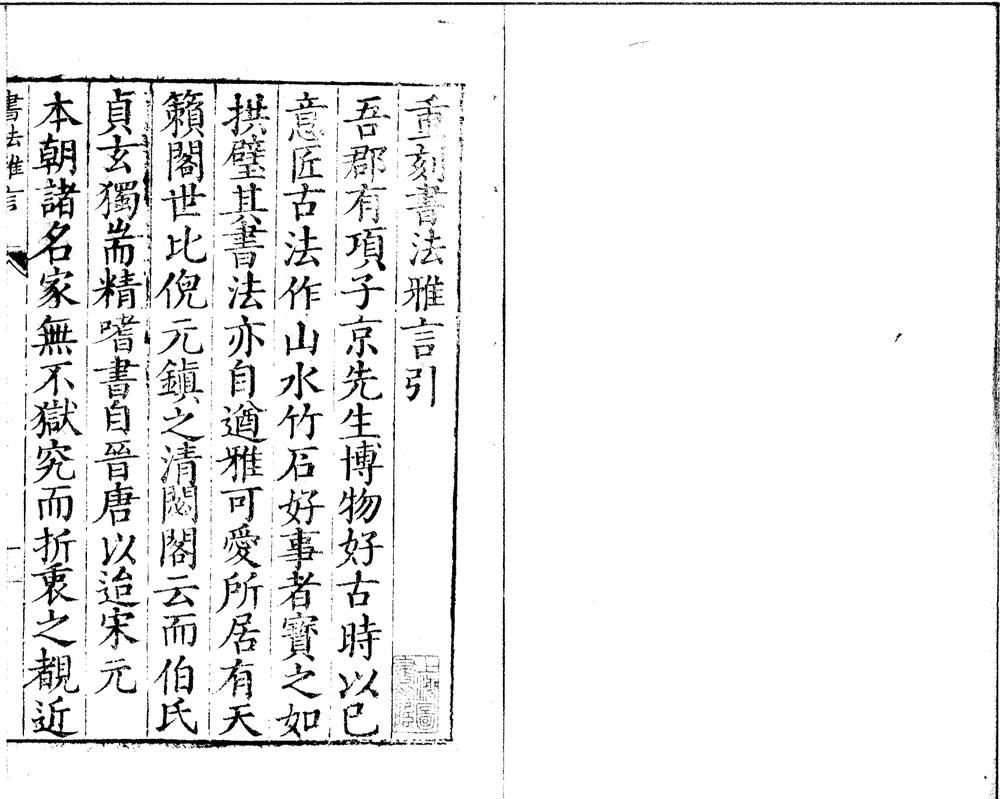 重刻書法雅言引
吾郡有項子京先生博物好古時以已
意匠古法作山水竹石好事者寳之如
拱璧其書法亦自遒雅可愛所居有天
籟閣世比倪元鎮之清閟閣云而伯氏
貞玄獨耑精嗜書自晉唐以迨宋元
本朝諸名家無不獄究而折衷之覩近
書法雅言
一